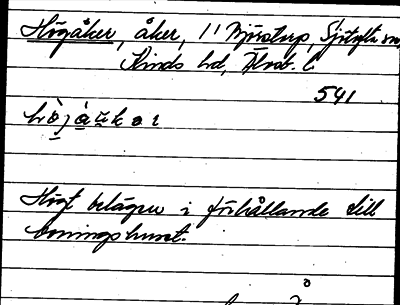 Högåker, åker, 11 Björstorp, Sjötofta sn,
Kinds hd, Älvsb. l
541
Högt belägen i förhållande till
boningshuset.